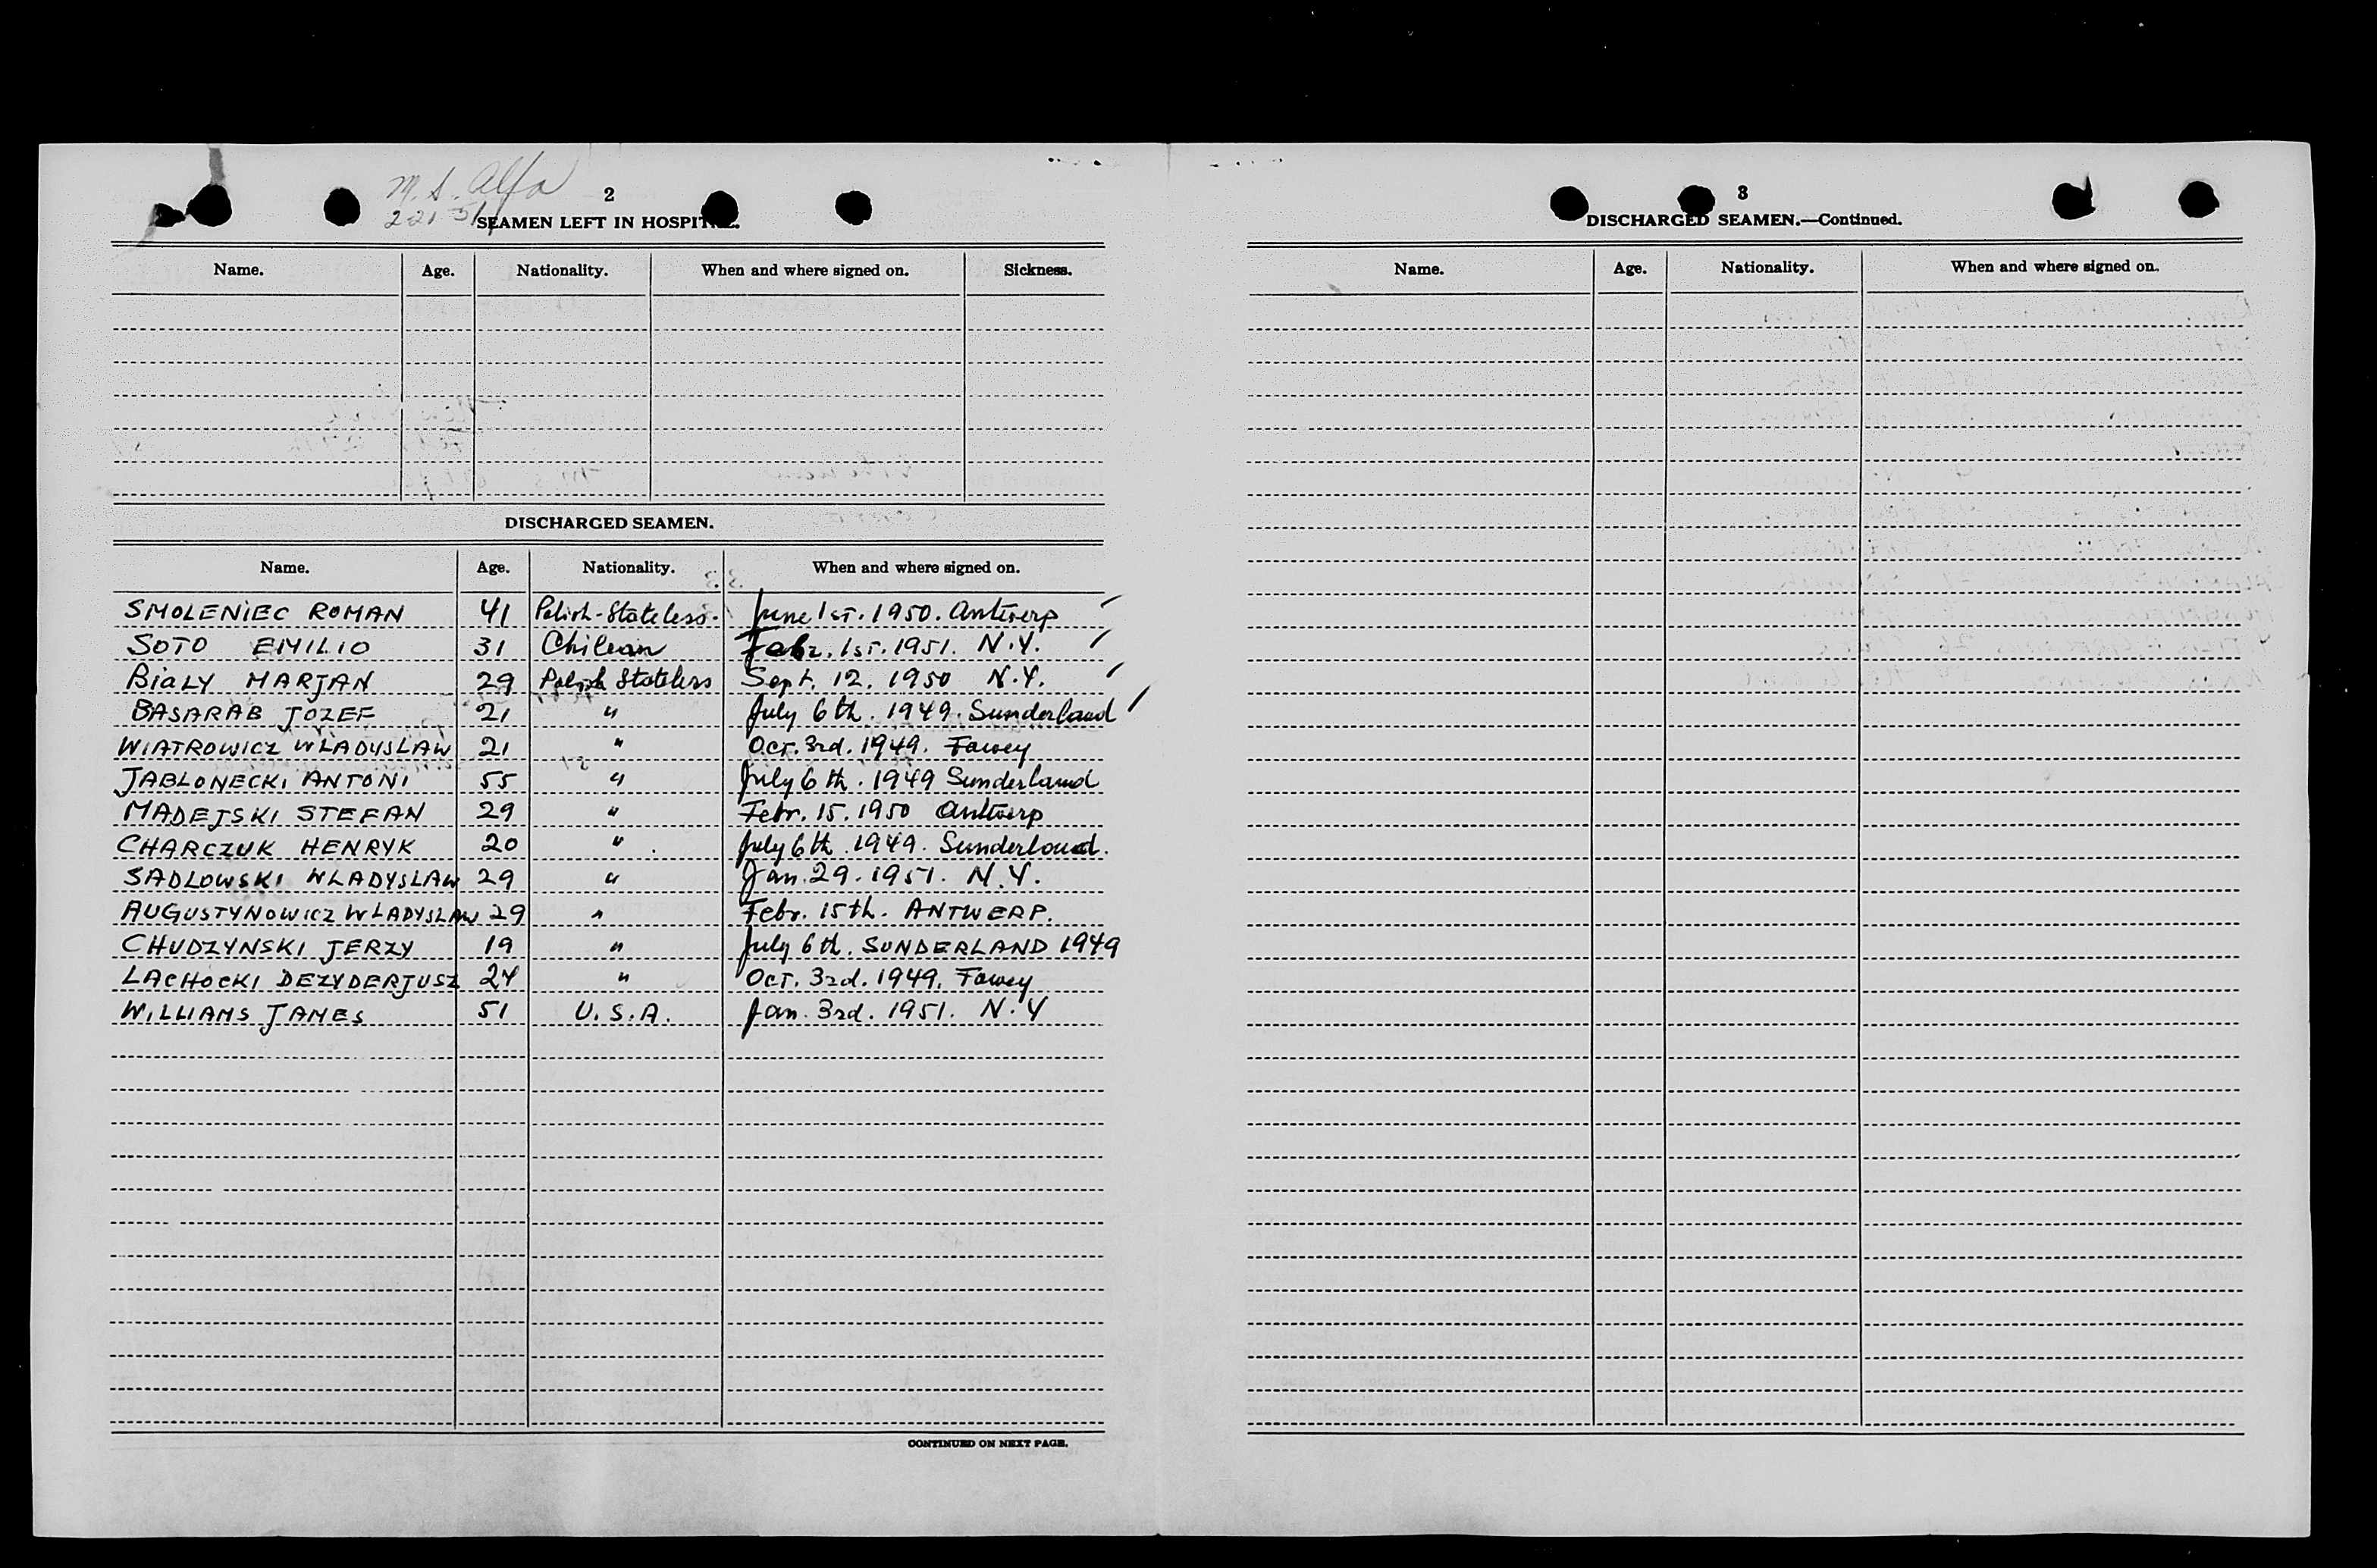 M.S. Alfa
2-21-51
2
SEAMEN LEFT IN HOSPITAL.
Name. Age. Nationality. When and where signed on. Sickness.
DISCHARGED SEAMEN.
Name. Age. Nationality. When and where signed on.
SMOLENIEC ROMAN 41 Polish-Stateless. June 1st. 1950. Antwerp
SOTO EMILIO 31 Chilean Febr. 1st. 1951. N.Y.
BIALY MARJAN 29 Polish Stateless Sept. 12. 1950 N.Y.
BASARAB JOZEF 21 " July 6th. 1949. Sunderland
WIATROWICZ WLADYSLAW 21 " Oct. 3rd. 1949. Fowey
JABLONECKI ANTONI 55 " July 6th. 1949 Sunderland
MADEJSKI STEFAN 29 " Febr. 15. 1950 Antwerp
CHARCZUK HENRYK 20 " July 6th. 1949. Sunderland.
SADLOWSKI WLADYSLAW 29 " Jan. 29. 1951. N.Y.
AUGUSTYNOWICZ WLADYSLAW 29 " Febr. 15th. ANTWERP.
CHUDZYNSKI JERZY 19 " July 6th. SUNDERLAND 1949
LACHOCKI DEZYDERJUSZ 24 " Oct. 3rd. 1949. Fowey
WILLIAMS JAMES 51 U.S.A. Jan. 3rd. 1951. N.Y
CONTINUED ON NEXT PAGE.
3
DISCHARGED SEAMEN.—Continued.
Name. Age. Nationality. When and where signed on.